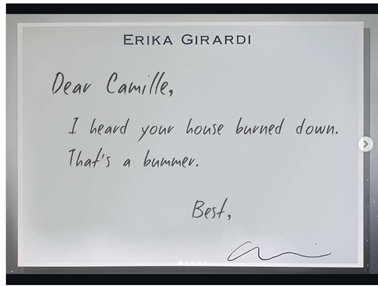 ERIKA GIRARDI
Dear Camille,
I heard your house burned down.
That's a bummer.
Best,